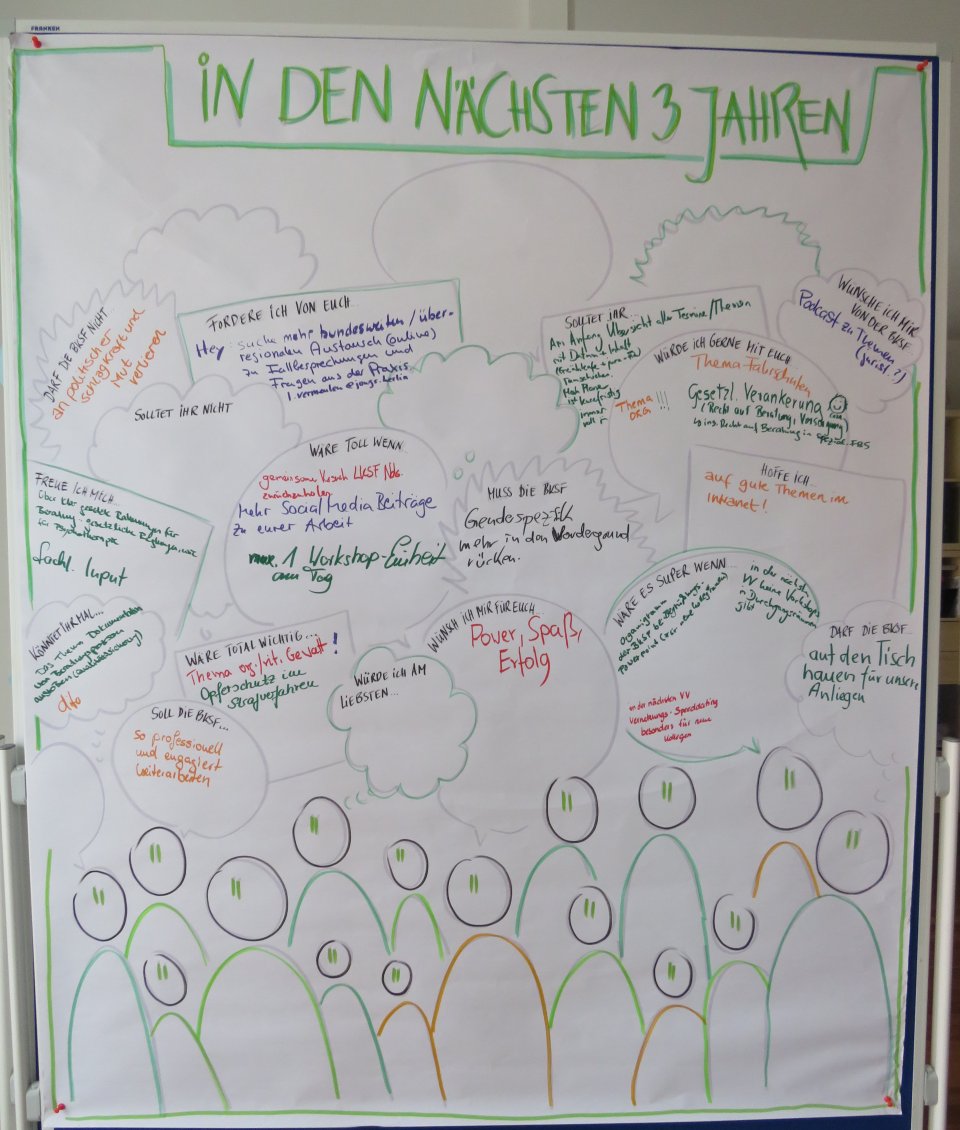 FRANKEN
IN DEN NÄCHSTEN 3 JAHREN
DARF DIE BKSF NICHT...
an politischer
Schlagkraft und
Mut
verlieren
FORDERE ICH VON EUCH...
Hey, suche mehr bundesweiten / über-
regionalen Austausch (online)
zu Fallbesprechungen und
Fragen aus der Praxis.
SOLLTET IHR...
Am Anfang Übersicht aller Termine/Themen
mit Datum & Inhalt
ist kurzfristig
immer
WÜNSCHE ICH MIR
VON DER BKSF
Podcast zu Themen
(jurist.?)
WÜRDE ICH GERNE MIT EUCH
Thema Fahrschulen
Thema
ORG !!!
Gesetzl. Verankerung
(Recht auf Beratung, Versorgung)
SOLLTET IHR NICHT
WÄRE TOLL WENN
gemeinsame Versuch LKSF Nds.
zurückzuholen
Mehr Social Media Beiträge
zu eurer Arbeit
max. 1 Workshop-Einheit
am Tag
MUSS DIE BKSF
Genderspezifik
mehr in den Vordergrund
rücken.
HOFFE ICH...
auf gute Themen im
Intranet!
FREUE ICH MICH...
für Psychotherapie
fachl. Input
KÖNNTET IHR MAL...
Das Thema Dokumentation
von Beratungsprozessen
(Qualitätssicherung)
dito
WÄRE TOTAL WICHTIG...
Thema org./rit. Gewalt!
Opferschutz im
Strafverfahren
WÜRDE ICH AM
LIEBSTEN...
WÜNSCH ICH MIR FÜR EUCH...
Power, Spaß,
Erfolg
WÄRE ES SUPER WENN...
Organigramm
der BKSF bei Begrüßungs-
in der nächsten
VV keine Workshops
in Durchgangsräumen
gibt
in der nächsten VV
Vernetzungs-Speeddating
besonders für neue
Kollegen
DARF DIE BKSF...
auf den Tisch
hauen für unsere
Anliegen
SOLL DIE BKSF...
so professionell
und engagiert
weiterarbeiten